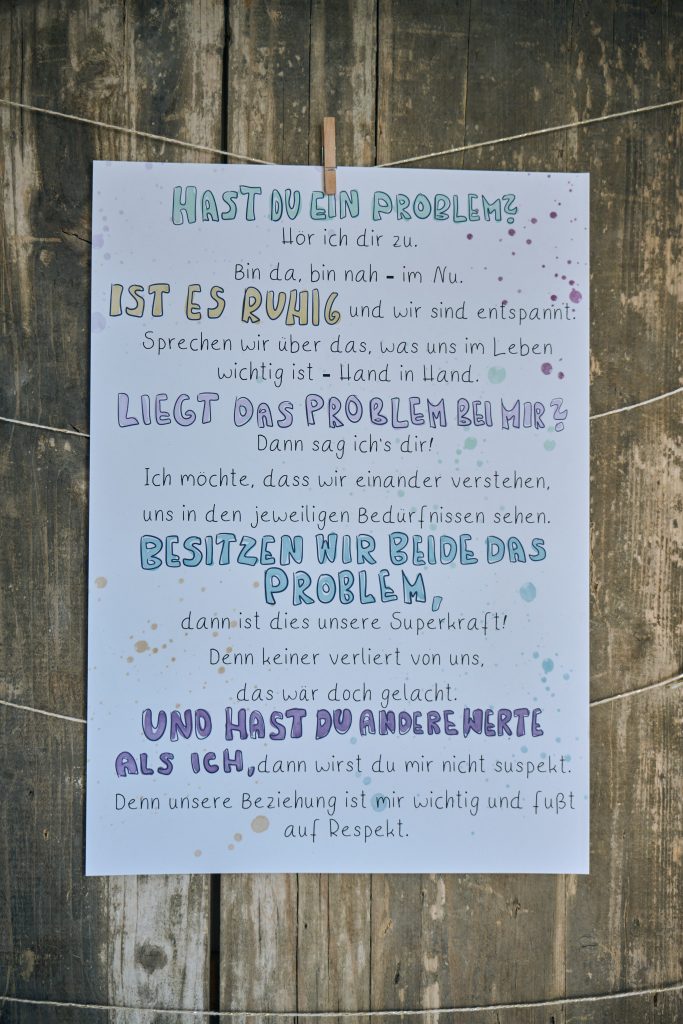 HAST DU EIN PROBLEM?
Hör ich dir zu.
Bin da, bin nah - im Nu.
IST ES RUHIG und wir sind entspannt:
Sprechen wir über das, was uns im Leben
wichtig ist - Hand in Hand.
LIEGT DAS PROBLEM BEI MIR?
Dann sag ich's dir!
Ich möchte, dass wir einander verstehen,
uns in den jeweiligen Bedürfnissen sehen.
BESITZEN WIR BEIDE DAS
PROBLEM,
dann ist dies unsere Superkraft!
Denn keiner verliert von uns,
das wär doch gelacht.
UND HAST DU ANDERE WERTE
ALS ICH, dann wirst du mir nicht suspekt.
Denn unsere Beziehung ist mir wichtig und fußt
auf Respekt.